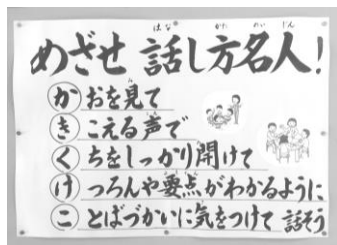 めざせ 話し方名人!
かおを見て
きこえる声で
くちをしっかり開けて
けつろんや要点がわかるように
ことばづかいに気をつけて 話そう